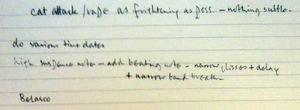 cat attack / rape as frightening as poss. – nothing subtle.
do various time dates
high suspense notes – add beating note – narrow glisses + delay
+ narrow band
Belasco